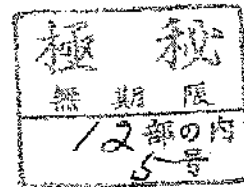 極秘
無期限
12部の内
5号